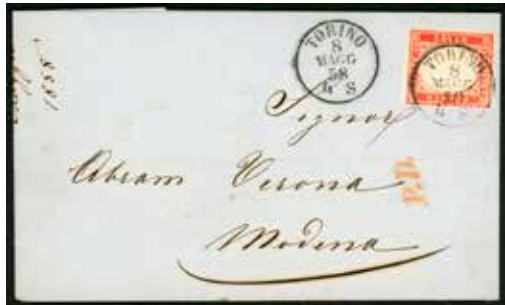 TORINO
8
MAGG
58
4 S
TORINO
8
MAGG
4 S
1858
Signor
Abram Verona
P.D.
Modena